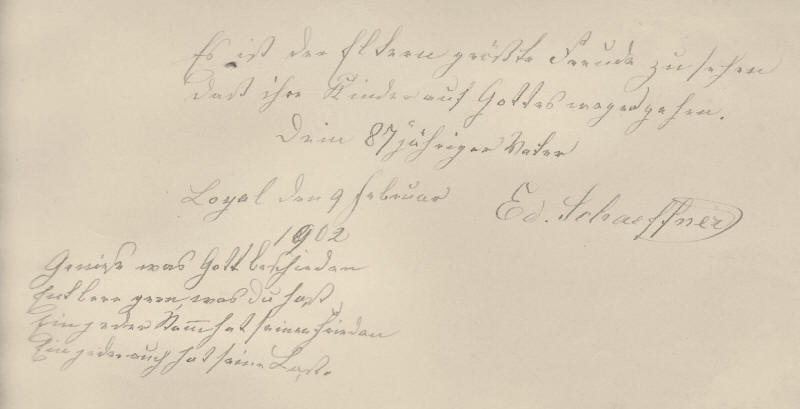 Es ist der Eltern größte Freude zu sehen
Daß ihre Kinder auf Gottes wegen gehen.
Dein 87 jähriger Vater
Loyal den 9 Februar
1902
Ed. Schaeffner
Geniese was Gott beschieden
Entbere gern, was du hast
Ein jeder Stam̅ hat seinen Frieden
Ein jeder auch hat seine Last.